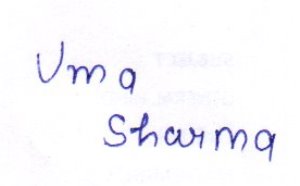 Uma
Sharma